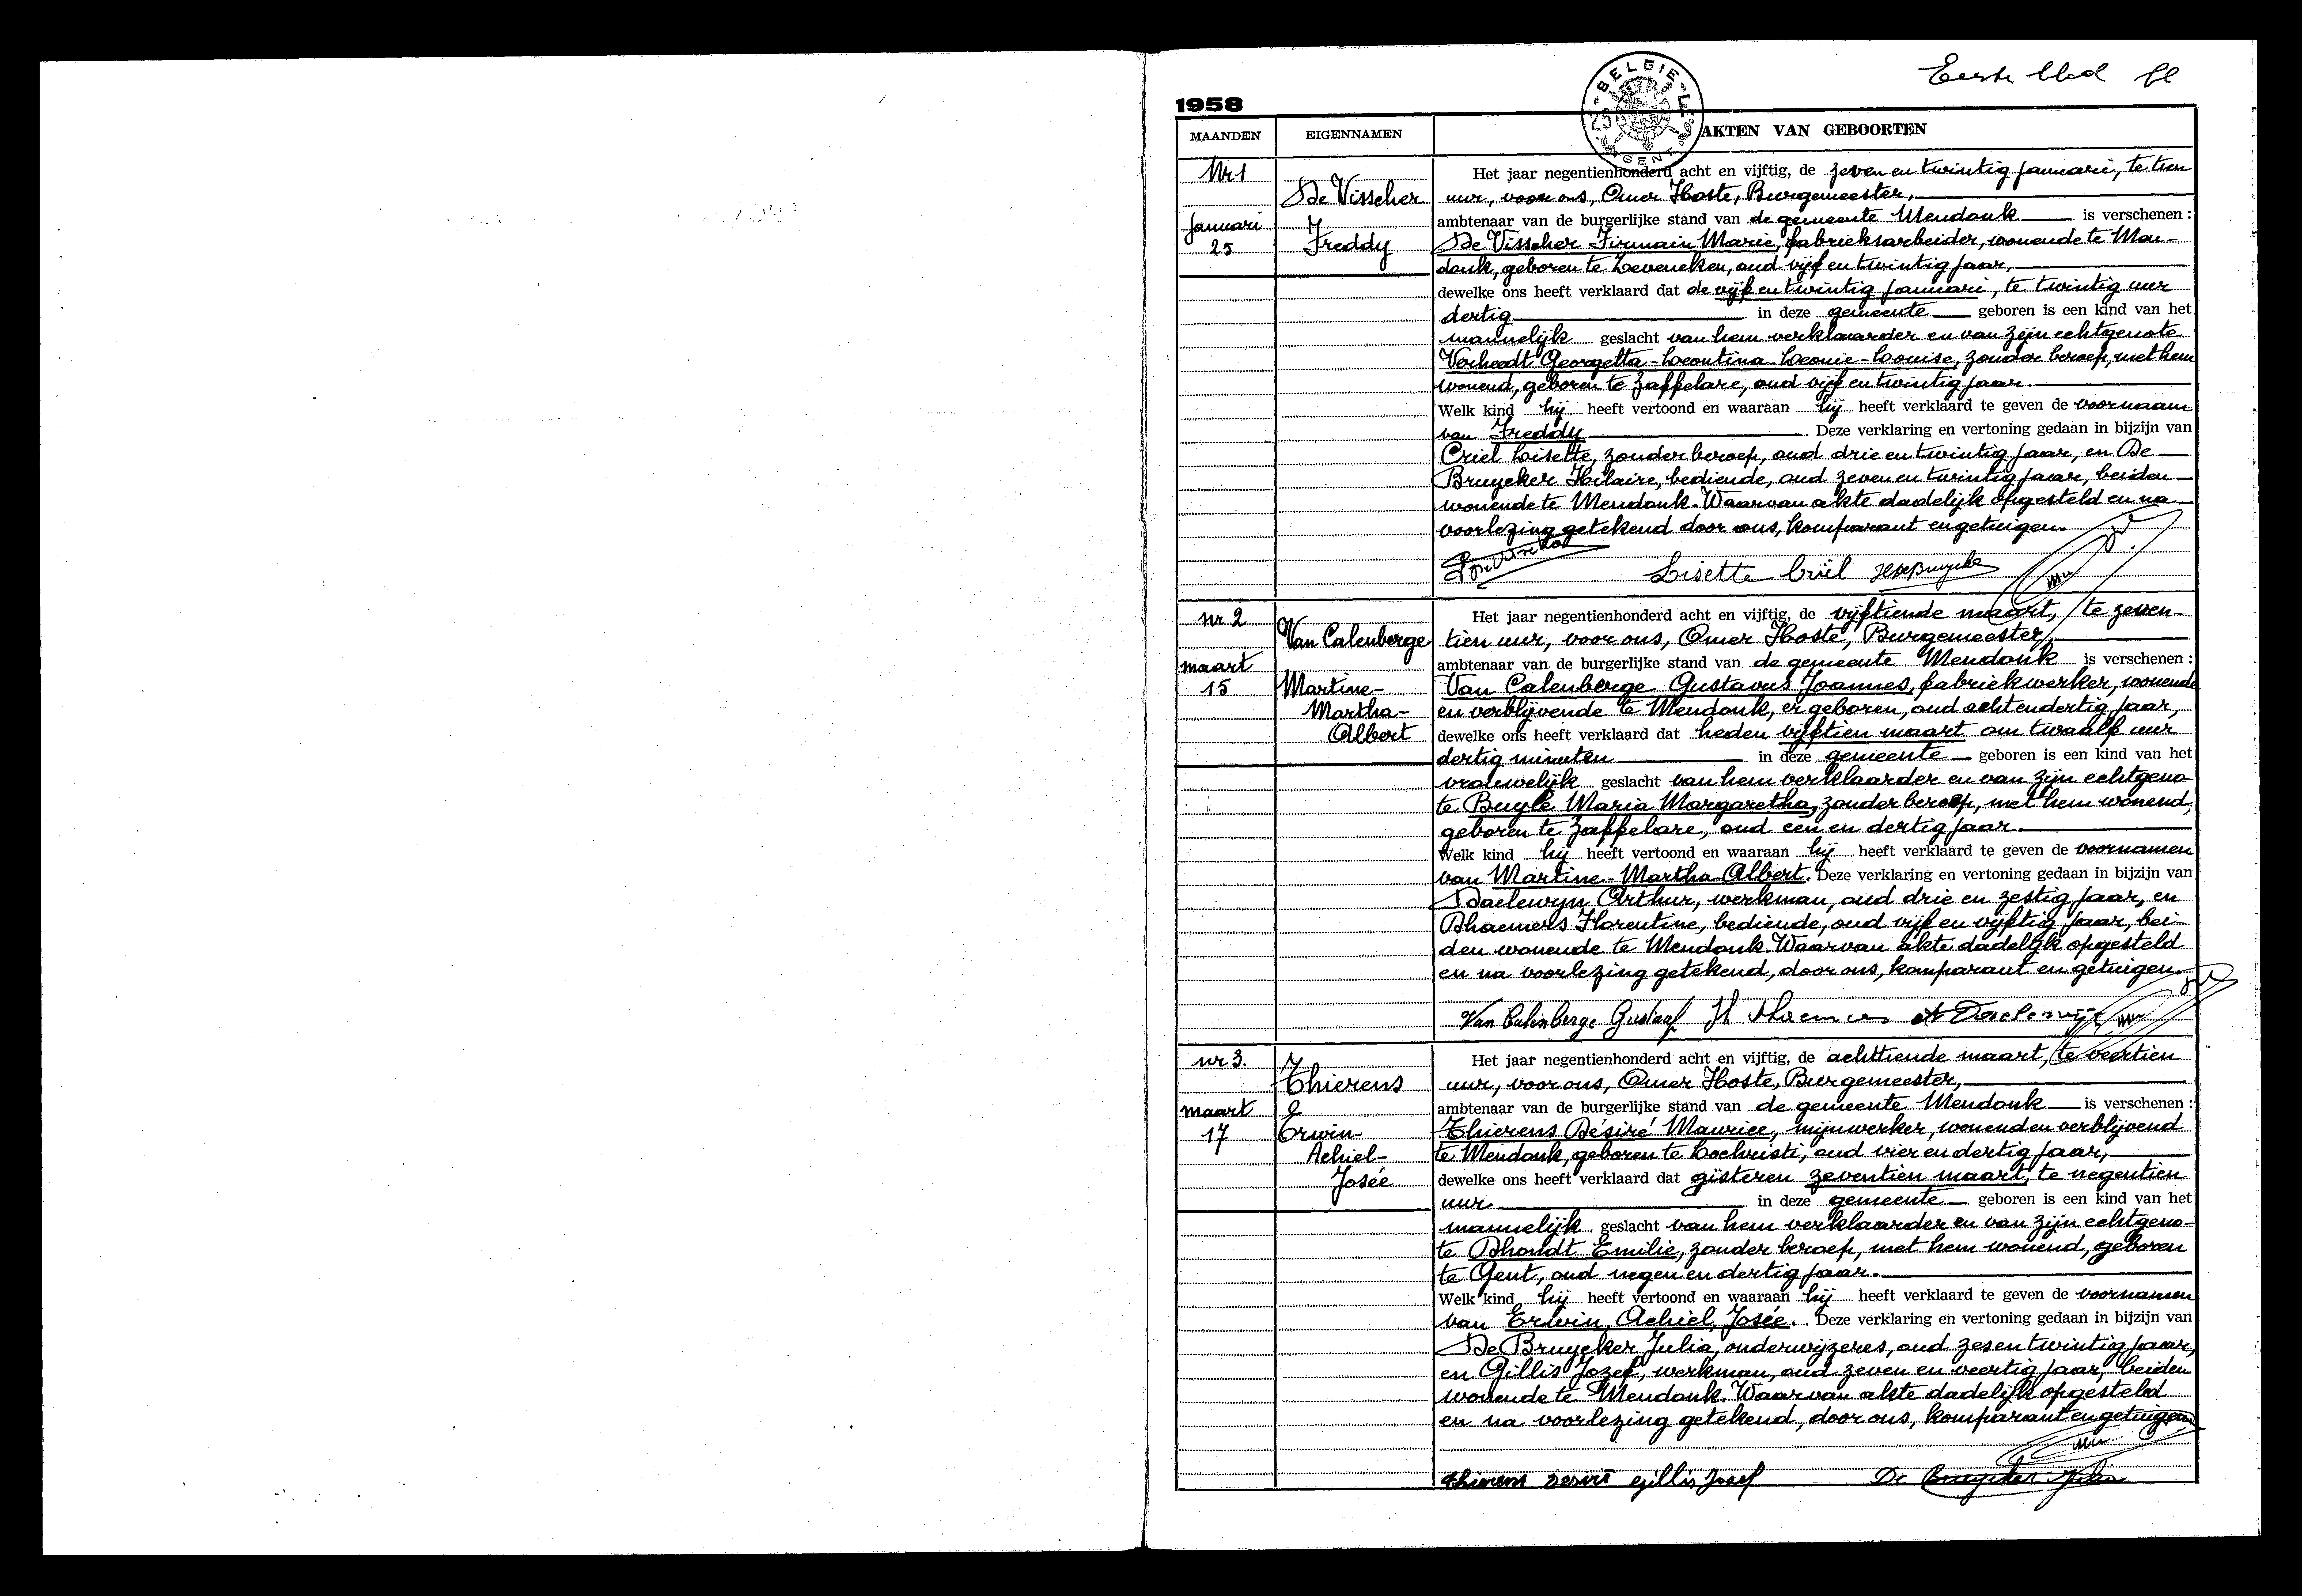 Eerste blad
1958
BELGIE
GENT
MAANDEN EIGENNAMEN AKTEN VAN GEBOORTEN
Nr 1
Januari
25
De Visscher
Freddy
Het jaar negentienhonderd acht en vijftig, de zeven en twintig januari, te tien
uur, voor ons, Omer Hoste, Burgemeester,
ambtenaar van de burgerlijke stand van de gemeente Mendonk is verschenen :
De Visscher Firmain Marie, fabrieksarbeider, wonende te Men-
donk, geboren te Zeveneken, oud vijf en twintig jaar,
dewelke ons heeft verklaard dat de vijf en twintig januari, te twintig uur
dertig in deze gemeente geboren is een kind van het
mannelijk geslacht van hem verklaarder en van zijn echtgenote
Verheedt Georgetta-Leontina Leonie-Louise, zonder beroep, met hem
wonend, geboren te Zaffelare, oud vijf en twintig jaar.
Welk kind hij heeft vertoond en waaraan hij heeft verklaard te geven de voornaam
van Freddy . Deze verklaring en vertoning gedaan in bijzijn van
Criel Lisette, zonder beroep, oud drie en twintig jaar, en De
Bruycker Hilaire, bediende, oud zeven en twintig jaar, beiden
wonende te Mendonk. Waarvan akte dadelijk opgesteld en na
voorlezing getekend door ons, komparant en getuigen.
Lisette Criel H De Bruycke
nr 2
maart
15
Van Calenberge
Martine-
Martha-
Albert
Het jaar negentienhonderd acht en vijftig, de vijftiende maart, te zeven-
tien uur, voor ons, Omer Hoste, Burgemeester,
ambtenaar van de burgerlijke stand van de gemeente Mendonk is verschenen :
Van Calenberge Gustavus Joannes, fabriekwerker, wonende
en verblijvende te Mendonk, er geboren, oud achtendertig jaar,
dewelke ons heeft verklaard dat heden vijftien maart om twaalf uur
dertig minuten in deze gemeente geboren is een kind van het
vrouwelijk geslacht van hem verklaarder en van zijn echtgeno-
te Buyle Maria Margaretha, zonder beroep, met hem wonend,
geboren te Zaffelare, oud een en dertig jaar.
Welk kind hij heeft vertoond en waaraan hij heeft verklaard te geven de voornamen
van Martine-Martha-Albert. Deze verklaring en vertoning gedaan in bijzijn van
Daelewyn Arthur, werkman, oud drie en zestig jaar, en
Dhaemers Florentine, bediende, oud vijf en vijftig jaar, bei-
den wonende te Mendonk. Waarvan akte dadelijk opgesteld
en na voorlezing getekend, door ons, komparant en getuigen.
Van Calenberge Gustaaf Fl Dhaemers A Daelewijn
nr 3.
maart
17
Thierens
Erwin-
Achiel-
Josée
Het jaar negentienhonderd acht en vijftig, de achttiende maart, te veertien
uur, voor ons, Omer Hoste, Burgemeester,
ambtenaar van de burgerlijke stand van de gemeente Mendonk is verschenen :
Thierens Désiré Maurice, mijnwerker, wonend en verblijvend
te Mendonk, geboren te Lochristi, oud vier en dertig jaar,
dewelke ons heeft verklaard dat gisteren zeventien maart, te negentien
uur in deze gemeente geboren is een kind van het
mannelijk geslacht van hem verklaarder en van zijn echtgeno-
te Dhondt Emilie, zonder beroep, met hem wonend, geboren
te Gent, oud negen en dertig jaar.
Welk kind hij heeft vertoond en waaraan hij heeft verklaard te geven de voornamen
van Erwin, Achiel, Josée. Deze verklaring en vertoning gedaan in bijzijn van
De Bruycker Julia, onderwijzeres, oud zesentwintig jaar,
en Gillis Jozef, werkman, oud zeven en veertig jaar, beiden
wonende te Mendonk. Waarvan akte dadelijk opgesteld
en na voorlezing getekend, door ons, komparant en getuigen
Thierens Desiré Gillis Josef De Bruycker Julia